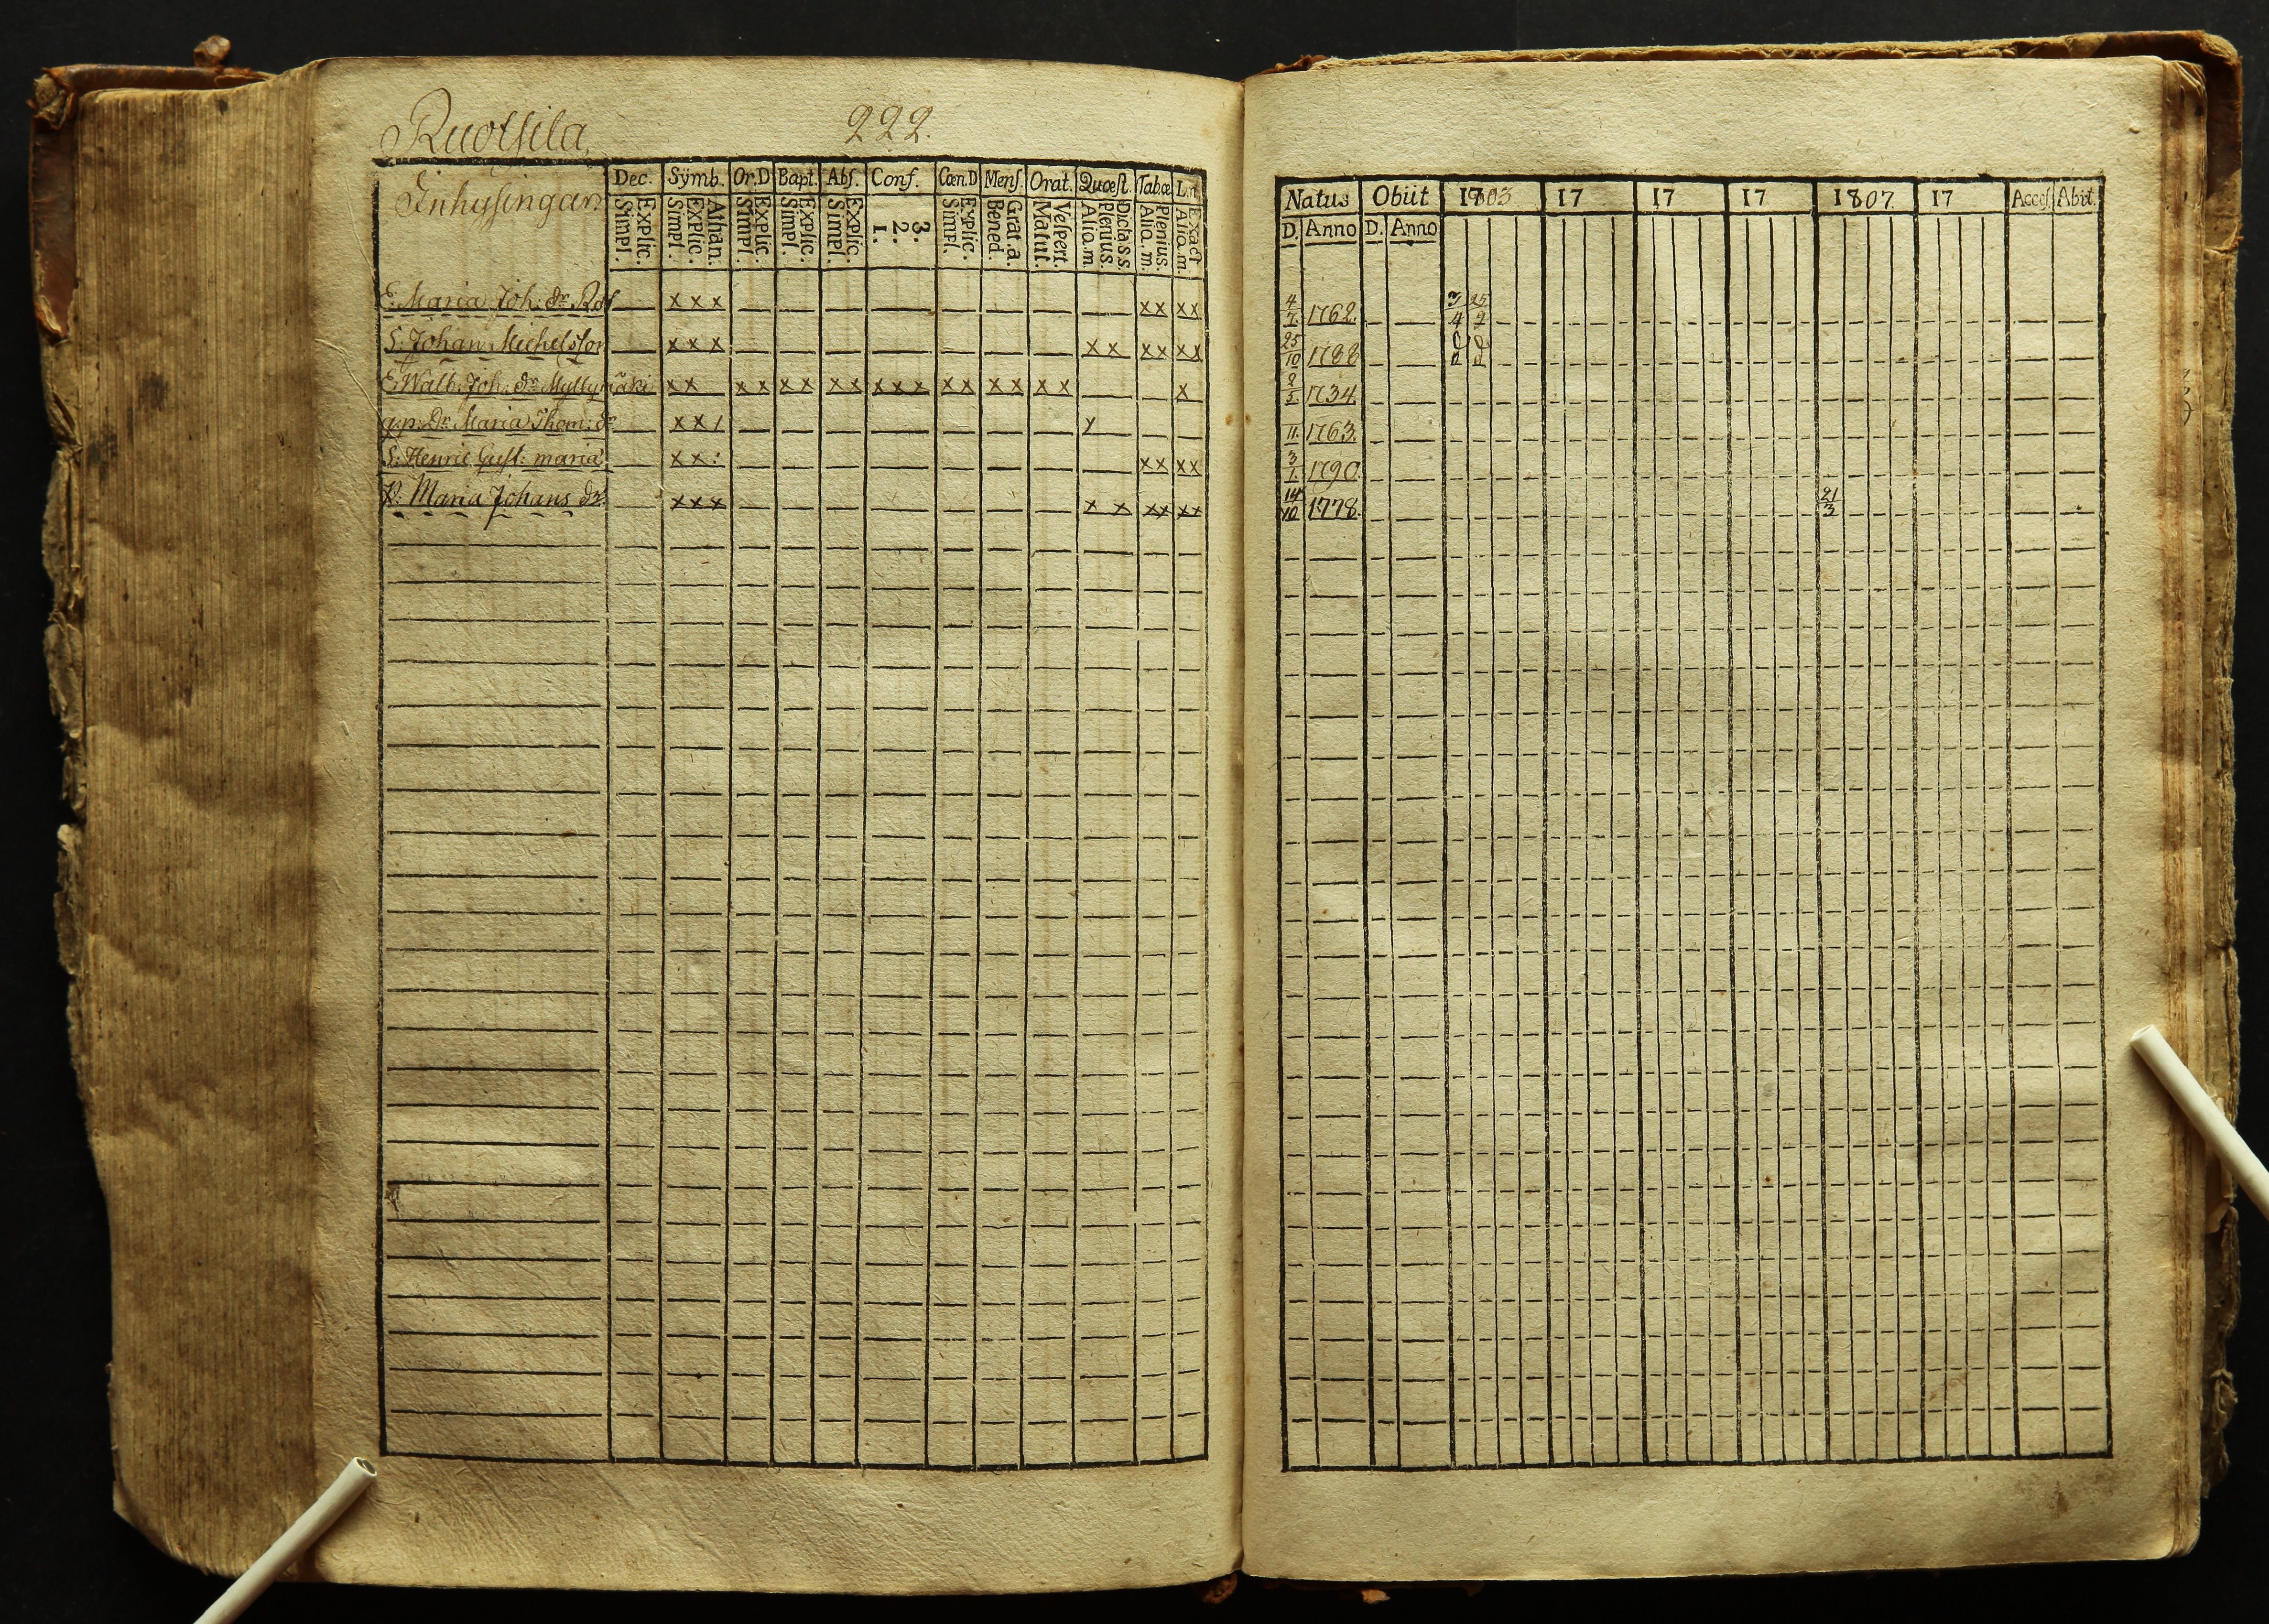 Ruotsila, 222.
Inhysingar
Dec. Sÿmb. Or.D Bapt. Abs. Conf. Cœn.D Mens. Orat. Quæst. Tabæ Lit
Explic. Simpl. Athan. Explic. Simpl. Explic. Simpl. Explic. Simpl. Explic. Simpl. 3. 2. 1. Explic. Simpl. Grat. a. Bened. Vespert. Matut. Dicta S.S. Plenius. Alio. m. Plenius. Alio. m. Exact Alio. m.
E. Maria Joh: dr. x x x x x x x
S: Johan Michelsson x x x x x x x x x
E. Walb. Joh: dr. Myllymäki x x x x x x x x x x x x x x x x x x x x
Dr. Maria Thom: dr x x
S: Henric Gust: maria x x : x x x x
P. Maria Johans dr. x x x x x x x x x
Natus Obiit 1803 17 17 17 1807. 17 Access. Abiit.
D. Anno D. Anno
4/7 1762. 3/4 25/2
25/10 1788
1734.
11. 1763.
3/1. 1790.
14/10 1778. 21/3